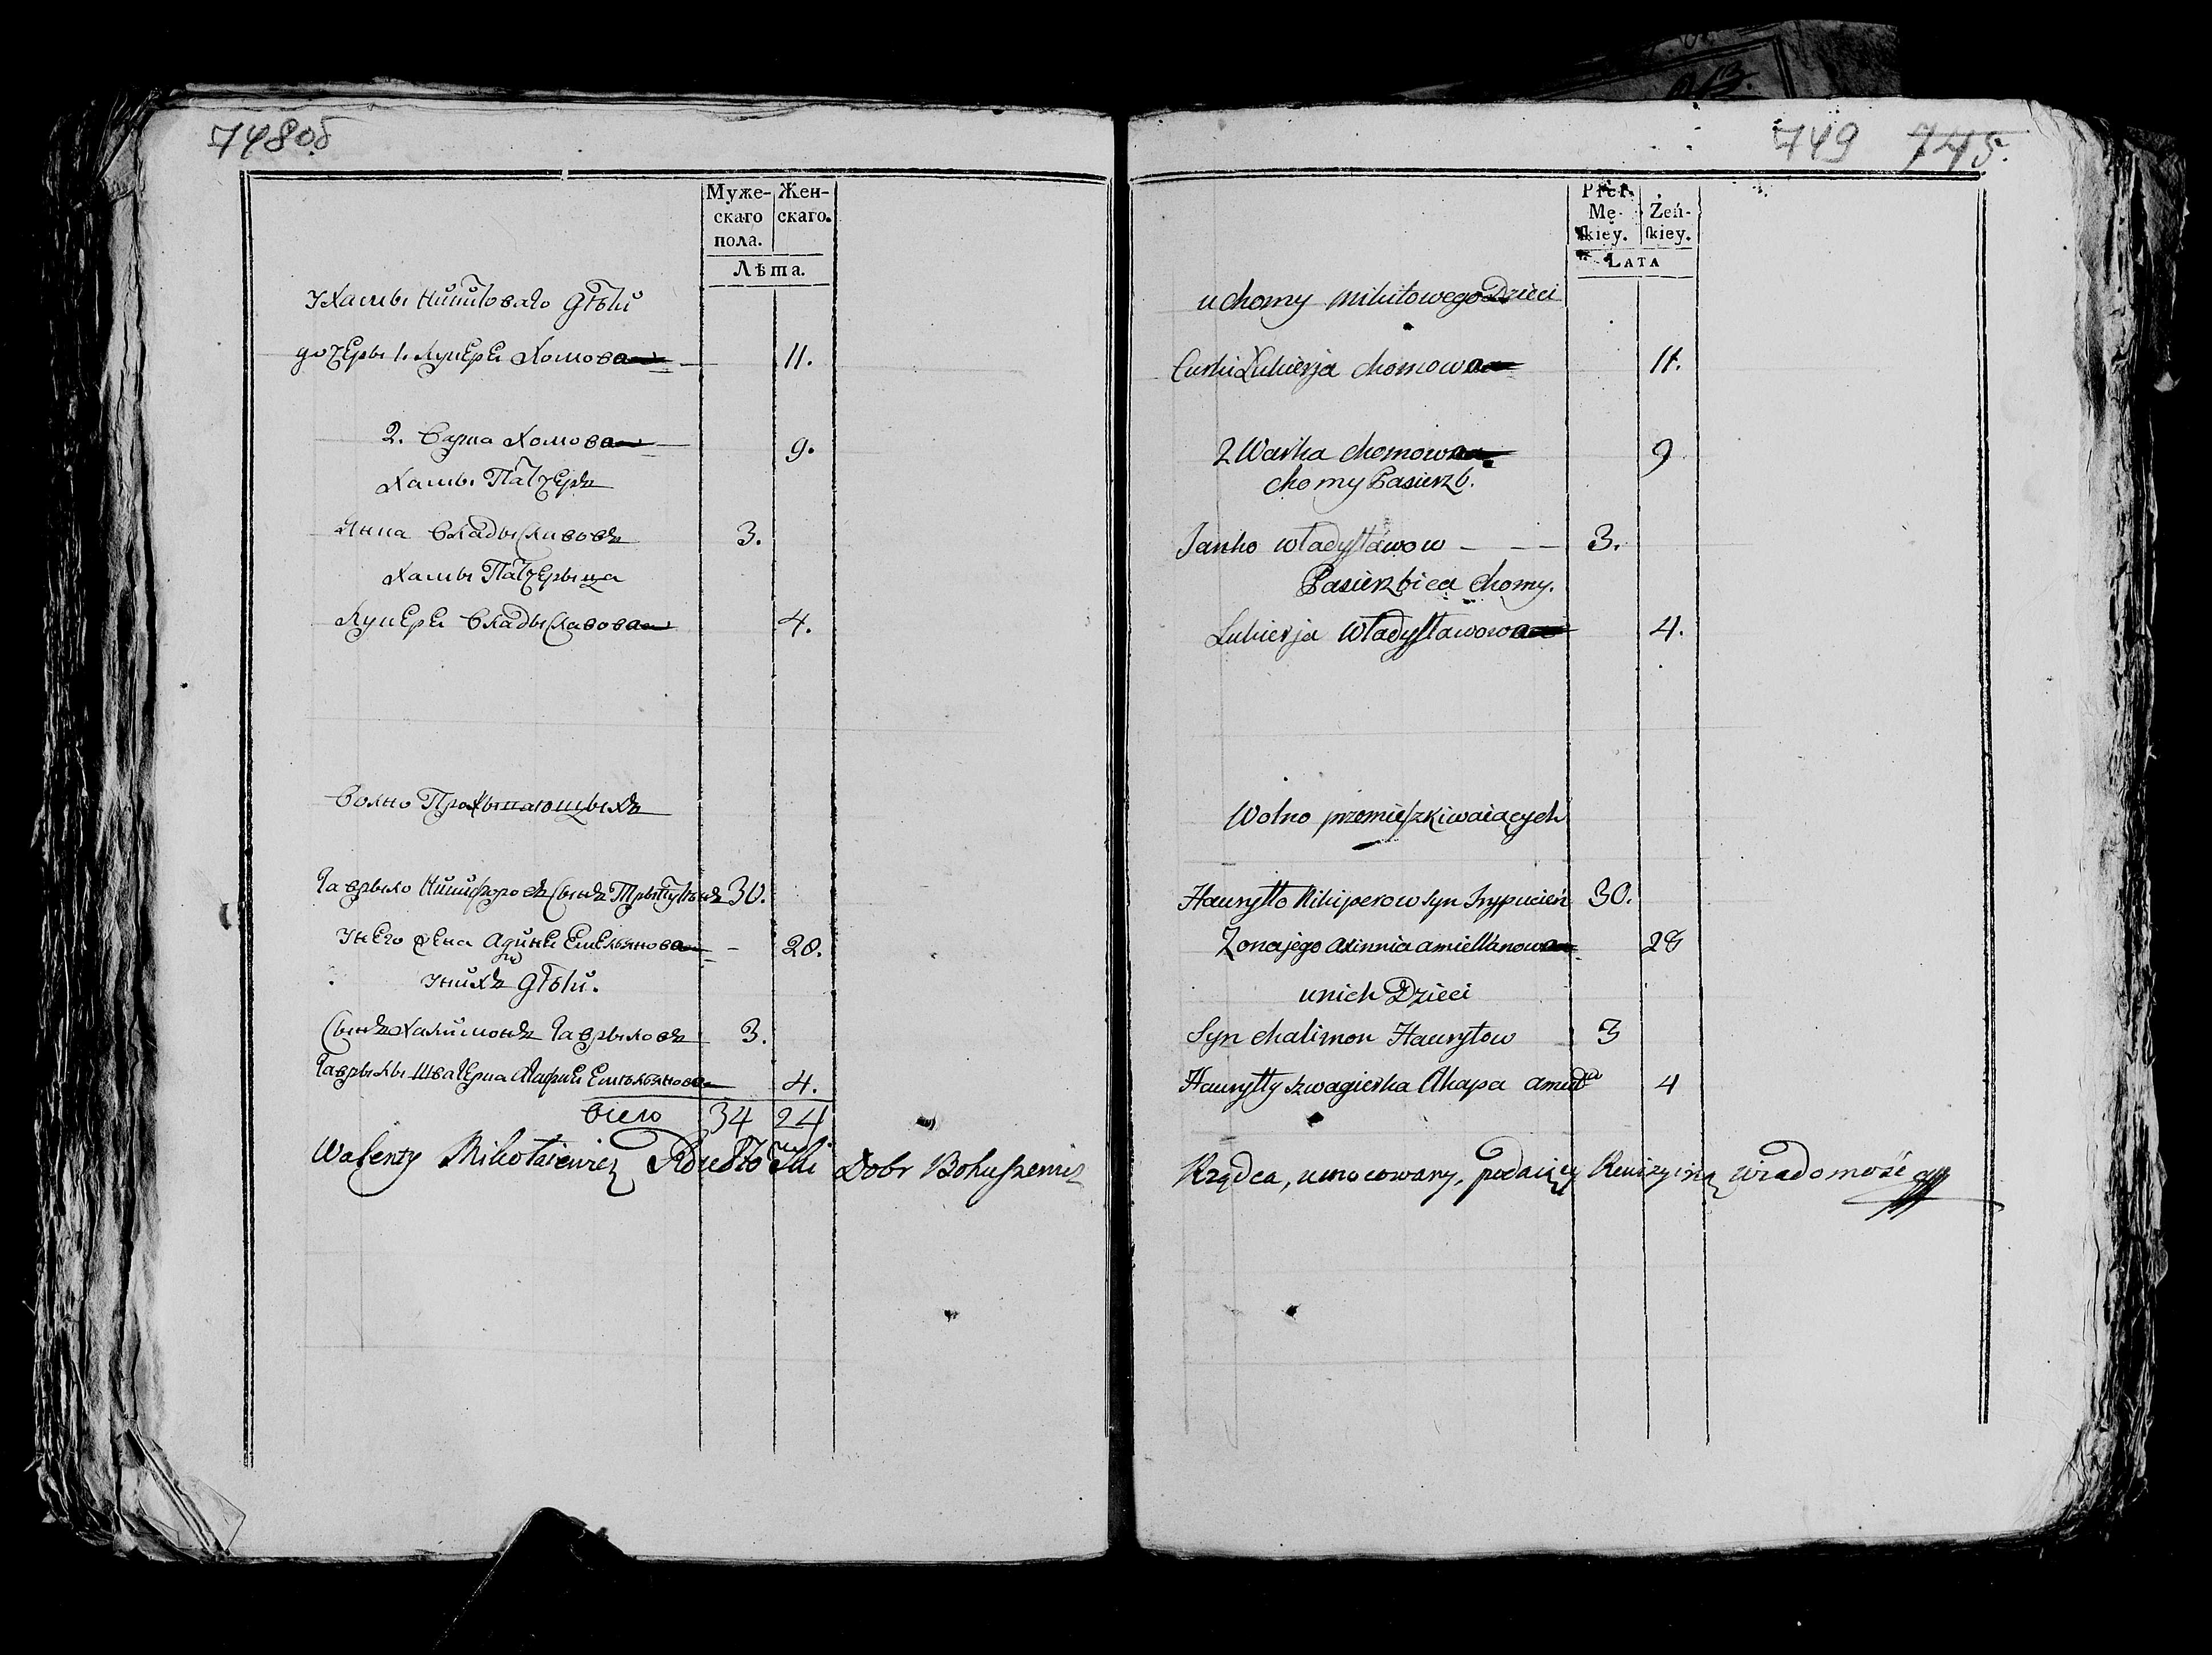 748об
Муже- Жен-
скаго скаго.
пола.
Лѣта.
у Хамы Никитоваго дѣти
дочеры 1. Лукерея Хомова 11.
2. Варка Хомова 9.
Хамы Патчеръ
Янка Владыславовъ 3.
Хамы Патчерыца
Лукерея Владыславова 4.
Волно Прожывающыхъ
Гаврыло Никифоровъ Сынъ 30.
У него жена Емельянова 20.
У нихъ дѣти.
Сынъ Халимонъ Гаврыловъ 3.
Гаврылы швагерка Агафия Емельянова 4.
всего 34 24
Walenty Mikołaiewicz Dobr Bohuszewicz
749 745.
Płci.
Mę- Żeń-
ſkiey. ſkiey.
LATA
u chomy Mikitowego Dzieci
Curki Lukierja chomowa 11.
2 Warka chomowa 9
chomy Pasierzb.
Janko Władysławow - - - 3.
Pasierzbica chomy.
Lukierja Władysławowa 4.
Wolno przemieszkiwaiących
Hauryłło Nikiperow Syn Trypucień 30.
Zona jego axinnia amiellanowa 28
u nich Dzieci
Syn chalimon Hauryłow 3
Hauryłły szwagierka Ahapa 4
Rządca, umocowany, podaiący Rewizyiną wiadomość